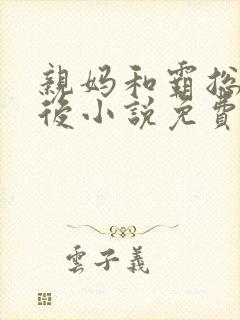 親妈和霸总
後小說免費
雲子義